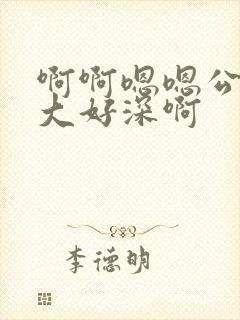 啊啊嗯嗯公
大好深啊
李德明